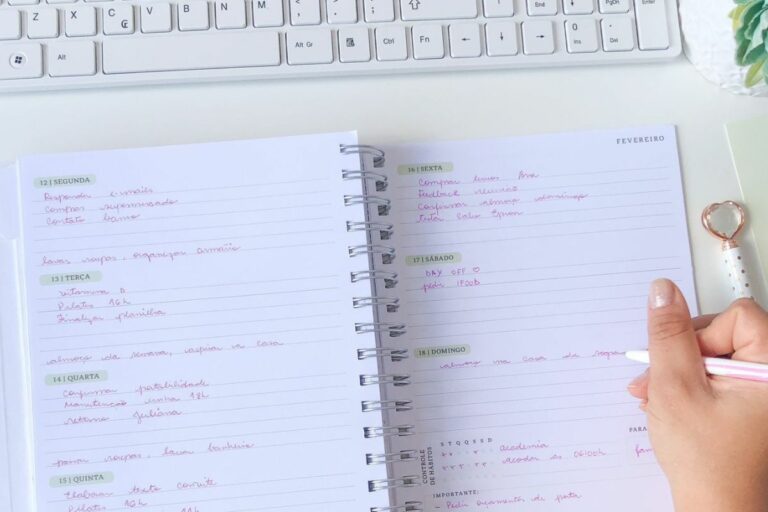 Z X C V B N M
Alt
Alt Gr
Fn
PgUp
PgDn
End
Enter
Ins
Del
12 | SEGUNDA
Responder e-mails
Compras supermercado
Contato banco
lavar roupas, organizar armário
13 | TERÇA
vitamina D
Pilates 16h
Finalizar planilha
almoço da semana, limpar a casa
14 | QUARTA
Confirmar
Manutenção unha 18h
retorno Juliana
passar roupas, lavar banheiro
15 | QUINTA
Elaborar texto convite
Pilates 16h
FEVEREIRO
16 | SEXTA
Comprar Ana
Feedback reunião
Confirmar almoço domingo
17 | SÁBADO
DAY OFF ♡
pedir IFOOD
18 | DOMINGO
almoço na casa da sogra
CONTROLE DE HÁBITOS
S T Q Q S S D
academia
acordar às 06:00h
PARA
IMPORTANTE:
- Pedir orçamentos da festa